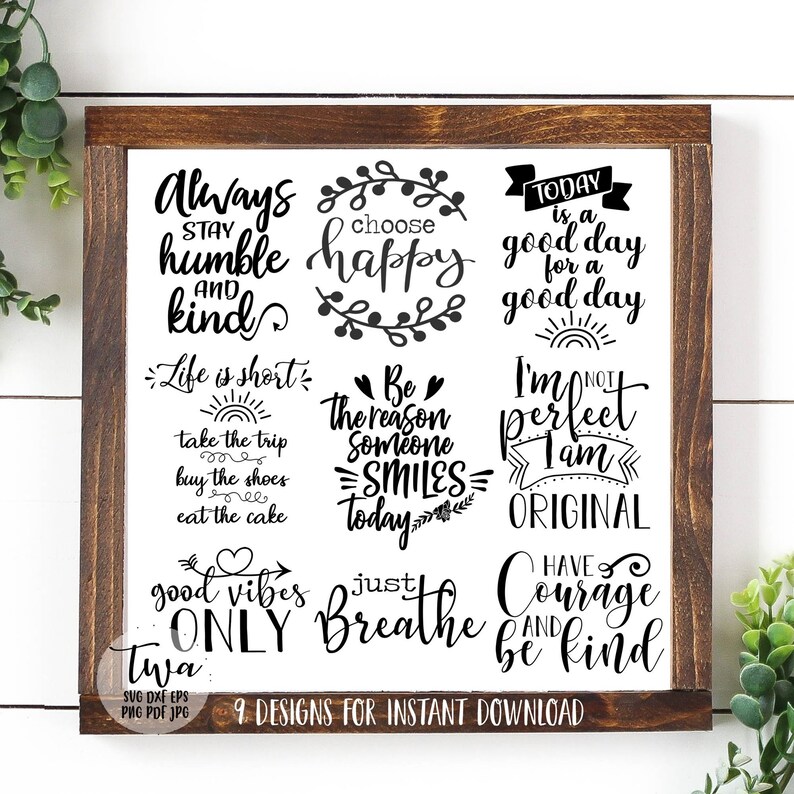 Always
STAY
humble
AND
kind
choose
happy
TODAY
is a
good day
for a
good day
Life is short
take the trip
buy the shoes
eat the cake
Be
the reason
someone
SMILES
today
I'm NOT
perfect
I am
ORIGINAL
good vibes
ONLY
just
Breathe
HAVE
Courage
AND
be kind
Twa
SVG DXF EPS
PNG PDF JPG
9 DESIGNS FOR INSTANT DOWNLOAD